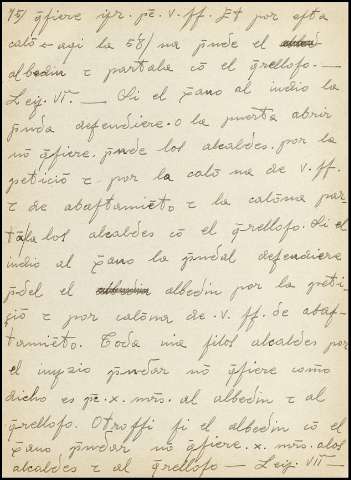 15/ q̄fiere yr. pē. v. ff. Et por efta
calōn̄ aqi la /na p̄nde el
albedin τ partala cō el q̄rellofo. —
Ley. VI. — Si el x̄ano al iudio la
p̄nda defendiere. o la puerta abrir
nō q̄fiere. p̄nde los alcaldes. por la
peticiō τ por la calōna de v. ff.
τ de abaftamiēto τ la calōna par
tāla los alcaldes cō el q̄rellofo. Si el
iudio al x̄ano la p̄nda defendiere
p̄del el albedin por la peti
çiō τ por calōna de. v. ff. de abaf-
tamiēto. Toda uia filos alcaldes por
el p̄ndar nō q̄fiere como
dicho es pē. x. mr̄s. al albedin τ al
q̄rellofo. Otroffi fi el albedin cō el
x̄ano p̄ndar nō q̄fiere. x. mr̄s. alos
alcaldes τ al q̄rellofo — Ley. VII —